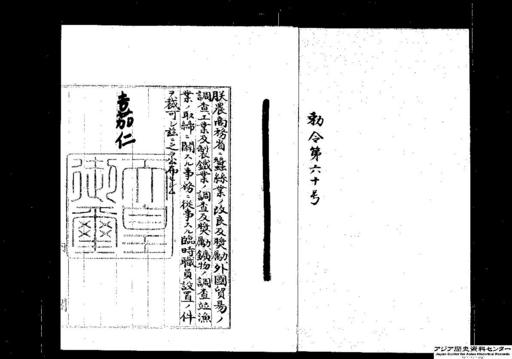 勅令第六十号
朕農商務省ニ蠶絲業ノ改良及奬勵外國貿易ノ
調査工業及製鐵業ノ調査及奬勵鑛物ノ調査竝漁
業ノ取締ニ關スル事務ニ從事スル臨時職員設置ノ件
ヲ裁可シ茲ニ之ヲ公布セシム
嘉仁
天皇
御璽
アジア歴史資料センター
Japan Center for Asian Historical Records